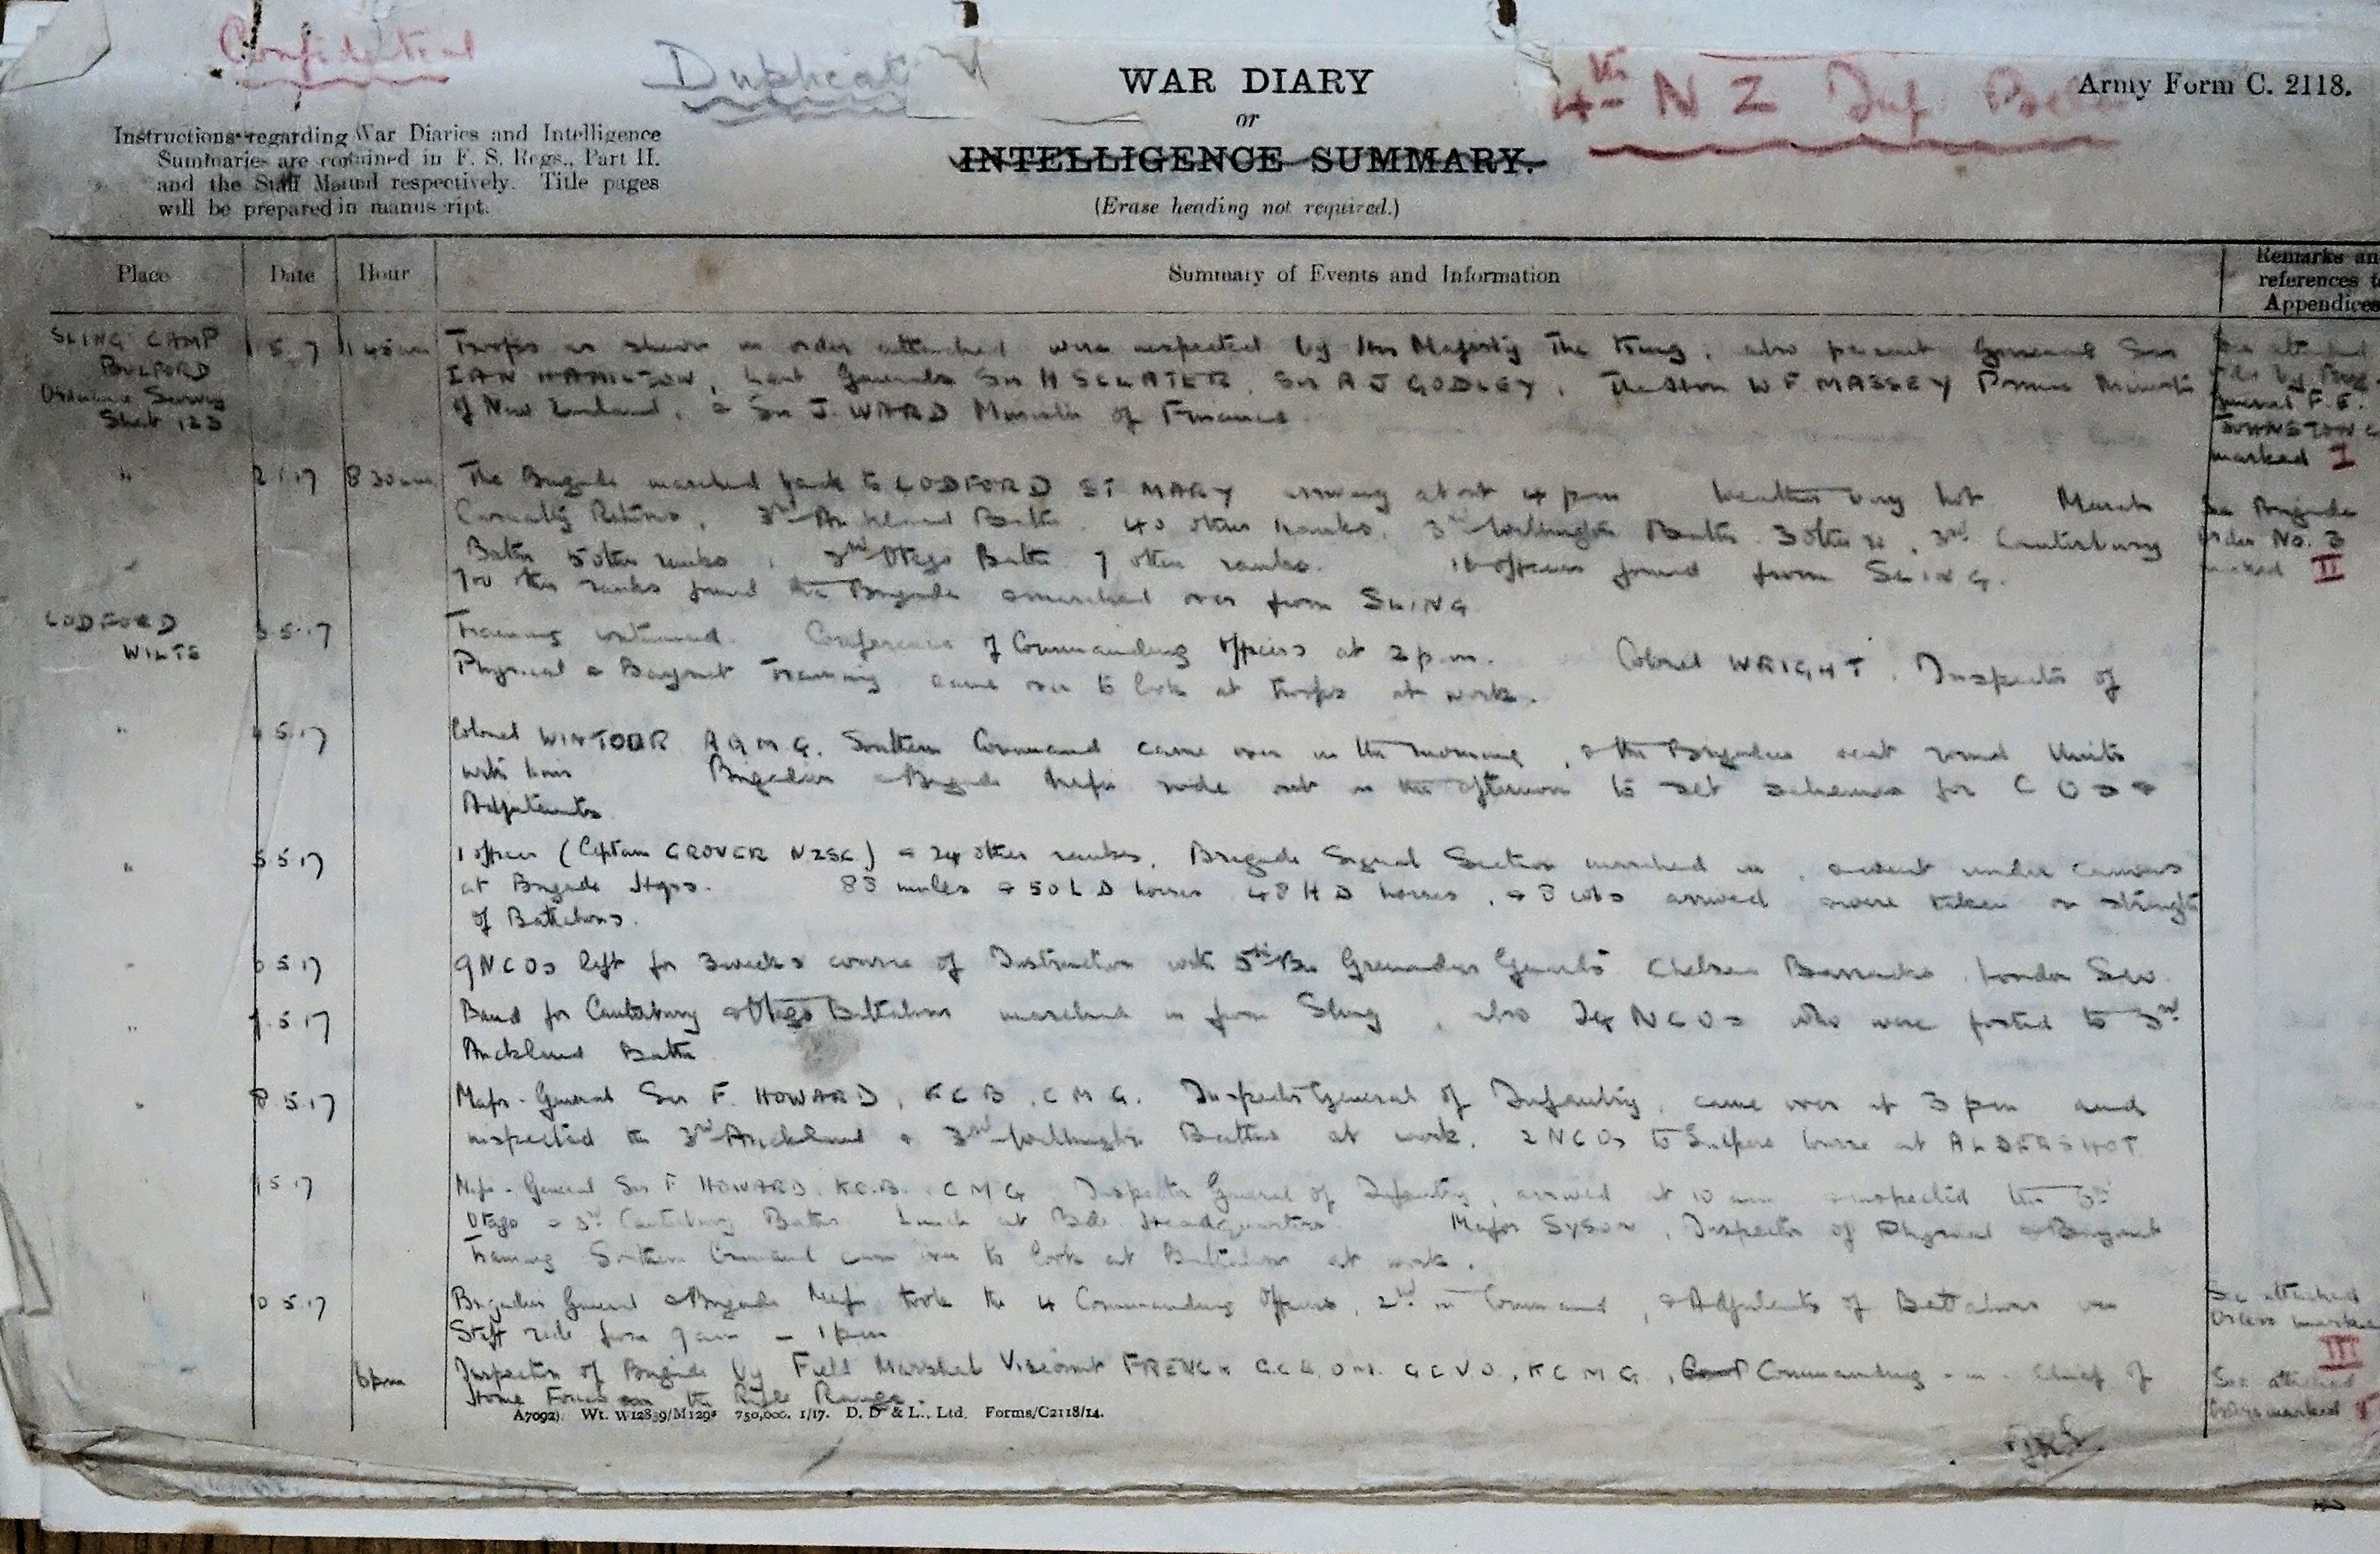 Confidential
Duplicate
WAR DIARY
or
INTELLIGENCE SUMMARY.
(Erase heading not required.)
4th N Z Inf
Army Form C. 2118.
Instructions regarding War Diaries and Intelligence
Summaries are contained in F. S. Regs., Part II.
and the Staff Manual respectively. Title pages
will be prepared in manuscript.
Place Date Hour Summary of Events and Information
Remarks and
references to
Appendices
SLING CAMP
BULFORD
Ordnance Survey
Sheet 123
Troops as shown in order attached were inspected by His Majesty The King, also present General Sir
IAN HAMILTON, Lieut Generals Sir H SCLATER, Sir A J GODLEY, The Hon W F MASSEY Prime Minister
of New Zealand, & Sir J. WARD Minister of Finance.
See attached
General F. E.
JOHNSTON
marked I
" 8 30 am The Brigade marched back to CODFORD ST MARY arriving about 4 pm Weather very hot March
Casualty Returns, 3rd Auckland Battn. 40 other ranks, 3rd Wellington Battn. 3 other r, 3rd Canterbury
Battn 5 other ranks, 3rd Otago Battn 7 other ranks. officers joined from SLING.
other ranks joined the Brigade & marched over from SLING
See Brigade
Order No. 3
marked II
CODFORD
WILTS
3.5.17 Training continued. Conference of Commanding Officers at 2 p.m. Colonel WRIGHT, Inspector of
Physical & Bayonet Training came over to look at troops at work.
" 4.5.17 Colonel WINTOUR A Q M G. Southern Command came over in the morning, & the Brigadier went round Units
with him Brigadier & Brigade Major rode out in the afternoon to set schemes for C Os &
Adjutants.
" 5.5.17 1 officer (Captain GROVER NZSC) & 24 other ranks, Brigade Signal Section marched in, & went under canvas
at Brigade Hqrs. 83 mules & 50 L D horses 48 H D horses, & 8 cobs arrived & were taken on strength
of Battalions.
" 6.5.17 9 NCOs left for 3 weeks course of Instruction with 5th Bn Grenadier Guards Chelsea Barracks, London S.W.
" 7.5.17 Band for Canterbury & Otago Battalions marched in from Sling, also 24 NCOs who were posted to 3rd
Auckland Battn
" 8.5.17 Major-General Sir F. HOWARD, K C B, C M G. Inspector General of Infantry, came over at 3 pm and
inspected the 3rd Auckland & 3rd Wellington Battns at work. 2 NCOs to course at ALDERSHOT
9.5.17 Major-General Sir F HOWARD, K.C.B., C M G Inspector General of Infantry, arrived at 10 am & inspected the 3rd
Otago & 3rd Canterbury Battns Lunch at Bde. Headquarters. Major SYSON, Inspector of Physical & Bayonet
Training Southern Command came over to look at Battalions at work.
" 10.5.17 Brigadier General & Brigade Major took the 4 Commanding Officers, 2nd in Command, & Adjutants of Battalions on
Staff ride from 9 am - 1 pm
See attached
Orders marked
III
6 pm Inspection of Brigade by Field Marshal Viscount FRENCH G.C.B, O M. G C V O., K C M G., Commanding-in-Chief of
Home Forces on the Rifle Range.
See attached
marked
A7092). Wt. W12859/M1293 750,000. 1/17. D. D & L., Ltd. Forms/C2118/14.